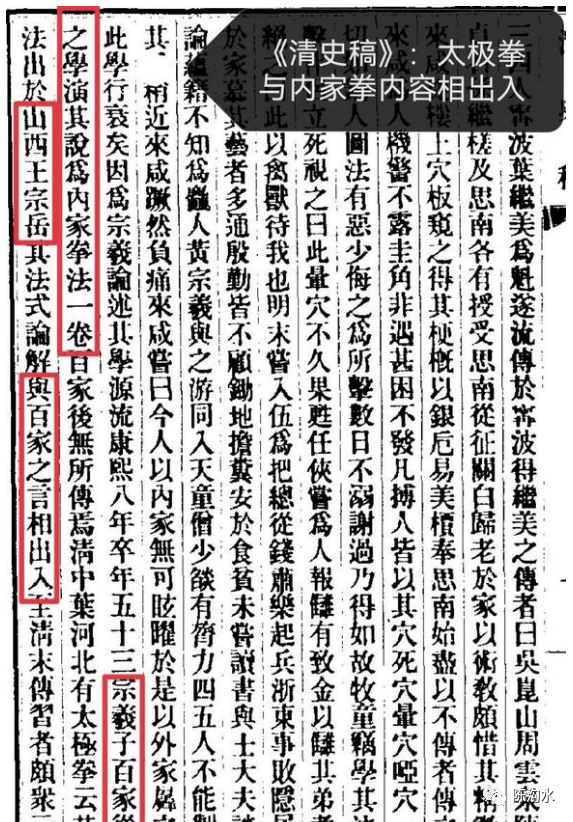 《清史稿》：太极拳
与内家拳内容相出入
三四人寧波葉繼美爲魁遂流傳於寧波得繼美之傳者曰吳崑山周雲泉陳
繼槎及思南各有授受思南從征關白歸老於家以術教頗惜其精
樓上穴板窺之得其梗概以銀卮易美檟奉思南始盡以不傳者傳
來咸人機警不露圭角非遇甚困不發凡搏人皆以其穴死穴暈穴啞穴
人圖法有惡少侮之爲所擊數日不溺謝過乃得如故牧童竊學其法
立死視之曰此暈穴不久果甦任俠嘗爲人報讎有致金以讎其弟者
此以禽獸待我也明末嘗入伍爲把總從錢肅樂起兵浙東事敗隱居
於家慕其藝者多通殷勤皆不顧鋤地擔糞安於食貧未嘗讀書與士大夫談
論蘊藉不知爲麤人黃宗羲與之游同入天童僧少燄有膂力四五人不能掣
其稍近來咸蹶然負痛來咸嘗曰今人以內家無可眩曜於是以外家羼之
此學行衰矣因爲宗羲論述其學源流康熙八年卒年五十三宗羲子百家從
之學演其說爲內家拳法一卷百家後無所傳焉清中葉河北有太極拳云其
法出於山西王宗岳其法式論解與百家之言相出入至清末傳習者頗衆
陈沟水